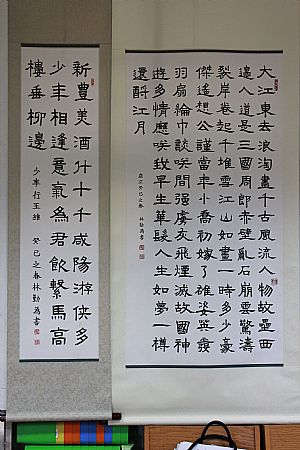 大江東去浪淘盡千古風流人物故壘西
邊人道是三國周郎赤壁亂石崩雲驚濤
裂岸卷起千堆雪江山如畫一時多少豪
傑遙想公謹當年小喬初嫁了雄姿英發
羽扇綸巾談咲間強虜灰飛煙滅故國神
遊多情應咲我早生華髮人生如夢一樽
還酹江月
歲次癸巳之春 林勤為書
新豐美酒斗十千咸陽游俠多
少年相逢意氣為君飲繫馬高
樓垂柳邊
少年行王維 癸巳之春林勤為書